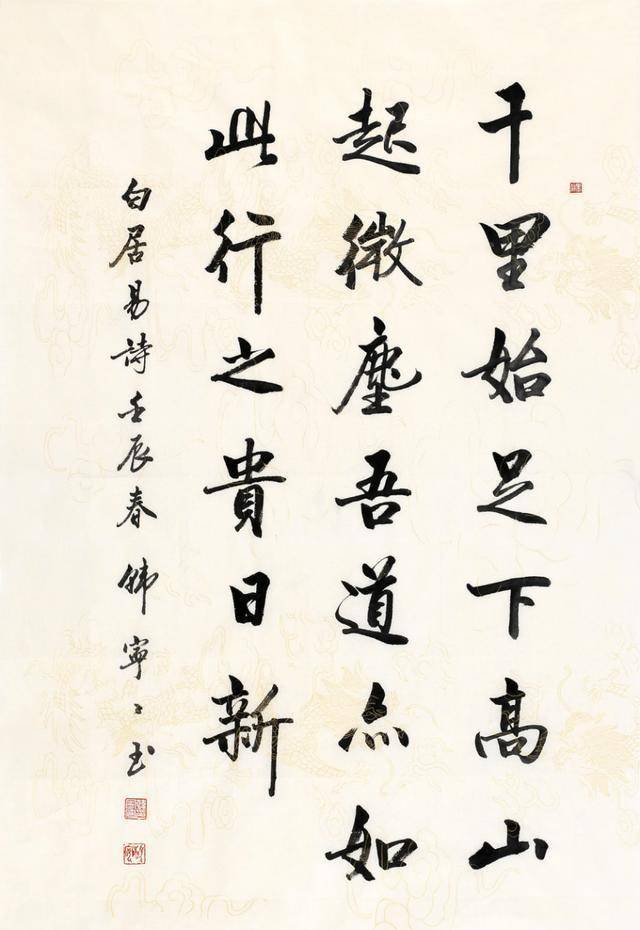 千里始足下高山
起微塵吾道亦如
此行之貴日新
白居易詩壬辰春韩寧寧玉